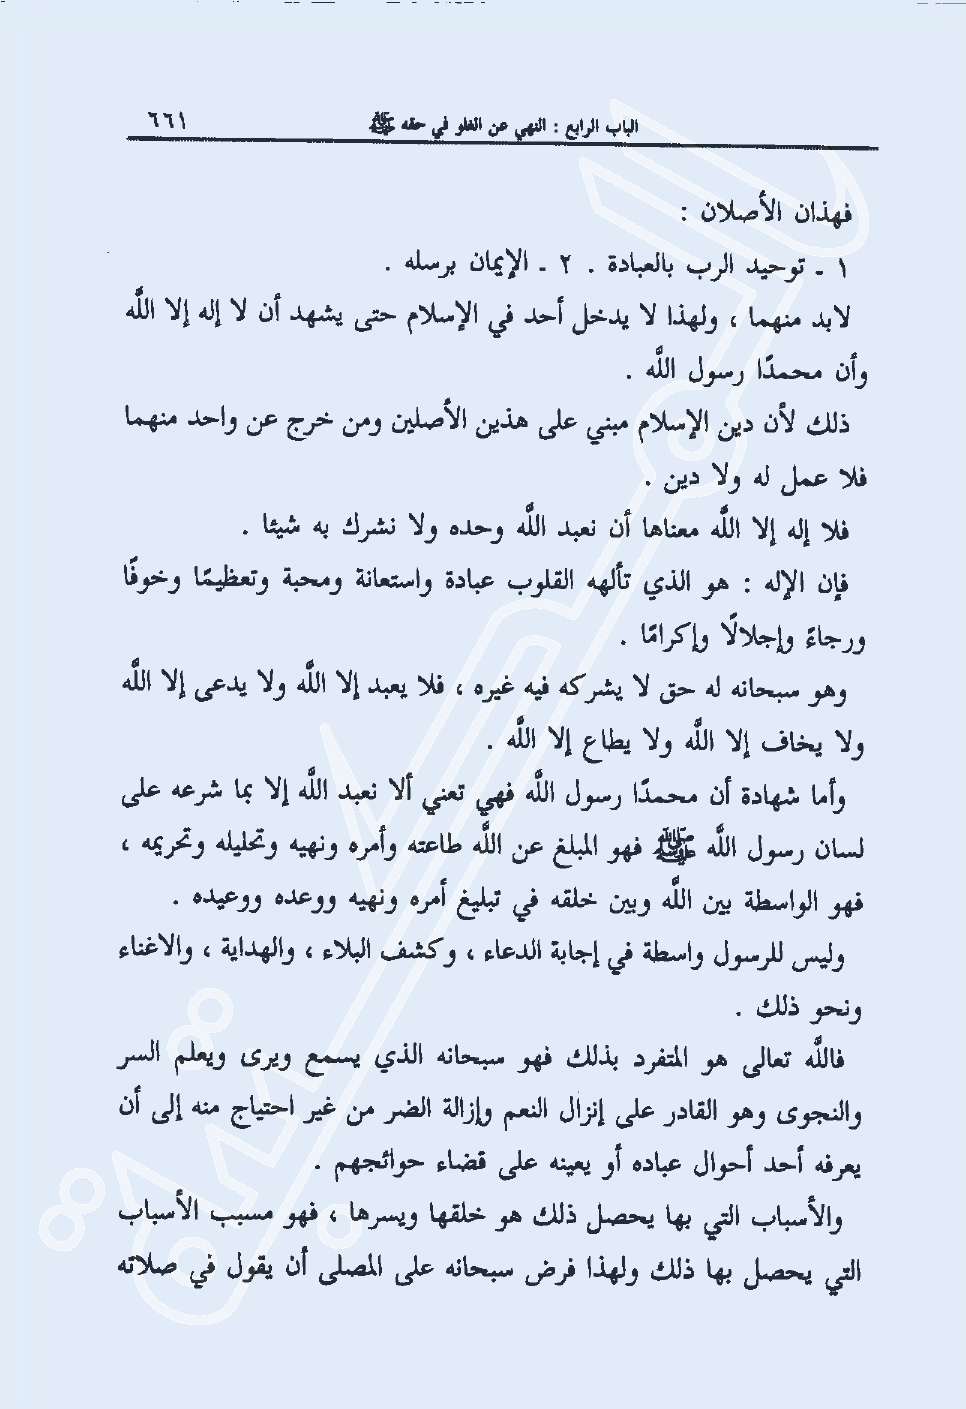 الباب الرابع : النهي عن الغلو في حقه ﷺ ٦٦١
فهذان الأصلان :
١ ـ توحيد الرب بالعبادة . ٢ ـ الإيمان برسله .
لابد منهما ، ولهذا لا يدخل أحد في الإسلام حتى يشهد أن لا إله إلا الله
وأن محمدًا رسول الله .
ذلك لأن دين الإسلام مبني على هذين الأصلين ومن خرج عن واحد منهما
فلا عمل له ولا دين .
فلا إله إلا الله معناها أن نعبد الله وحده ولا نشرك به شيئا .
فإن الإله : هو الذي تألهه القلوب عبادة واستعانة ومحبة وتعظيمًا وخوفًا
ورجاءً وإجلالًا وإكرامًا .
وهو سبحانه له حق لا يشركه فيه غيره ، فلا يعبد إلا الله ولا يدعى إلا الله
ولا يخاف إلا الله ولا يطاع إلا الله .
وأما شهادة أن محمدًا رسول الله فهي تعني ألا نعبد الله إلا بما شرعه على
لسان رسول الله ﷺ فهو المبلغ عن الله طاعته وأمره ونهيه وتحليله وتحريمه ،
فهو الواسطة بين الله وبين خلقه في تبليغ أمره ونهيه ووعده ووعيده .
وليس للرسول واسطة في إجابة الدعاء ، وكشف البلاء ، والهداية ، والاغناء
ونحو ذلك .
فالله تعالى هو المتفرد بذلك فهو سبحانه الذي يسمع ويرى ويعلم السر
والنجوى وهو القادر على إنزال النعم وإزالة الضر من غير احتياج منه إلى أن
يعرفه أحد أحوال عباده أو يعينه على قضاء حوائجهم .
والأسباب التي بها يحصل ذلك هو خلقها ويسرها ، فهو مسبب الأسباب
التي يحصل بها ذلك ولهذا فرض سبحانه على المصلى أن يقول في صلاته